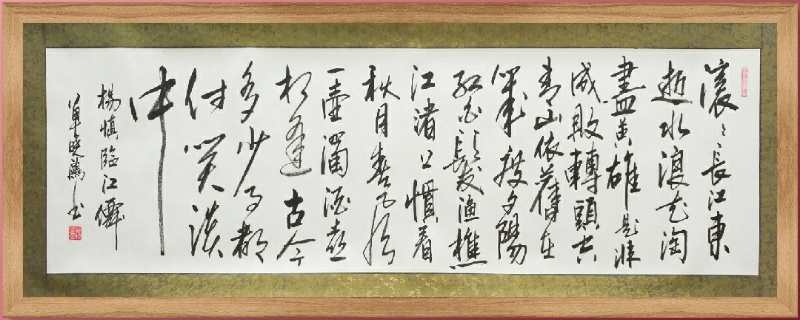 滚滚長江東
逝水浪花淘
盡英雄是非
成敗轉頭空
青山依舊在
幾度夕陽
紅白髮漁樵
江渚上慣看
秋月春風
一壺濁酒喜
相逢古今
多少事都
付笑談
中
楊慎臨江僊
書